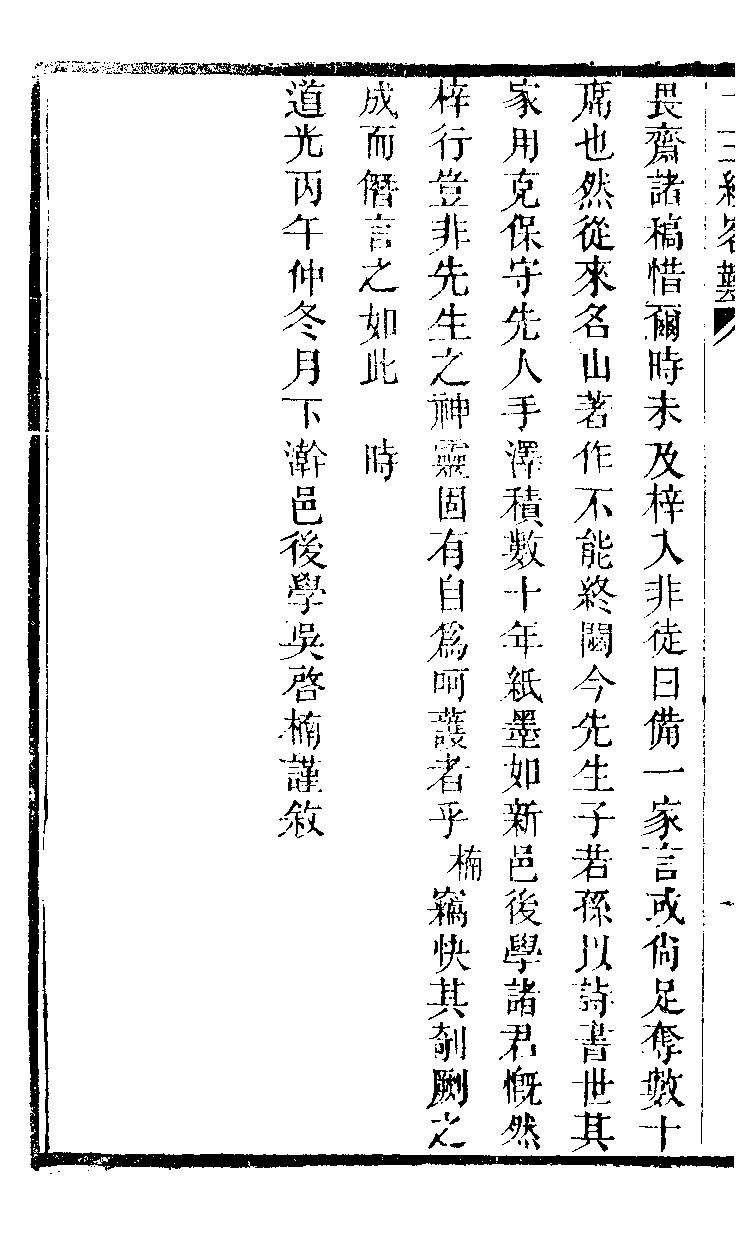 十三經客難
畏齋諸稿惜爾時未及梓入非徒曰備一家言或尙足奪數十
席也然從來名山著作不能終閟今先生子若孫以詩書世其
家用克保守先人手澤積數十年紙墨如新邑後學諸君慨然
梓行豈非先生之神靈固有自爲呵護者乎楠竊快其剞劂之
成而僭言之如此　時
道光丙午仲冬月下澣邑後學吳啓楠謹敘